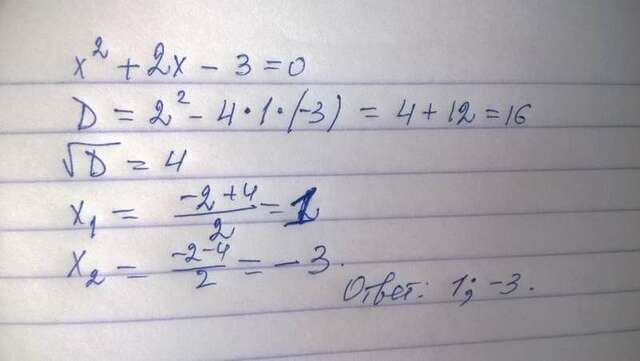 x² + 2x - 3 = 0
D = 2² - 4 · 1 · (-3) = 4 + 12 = 16
√D = 4
x₁ = (-2+4)/2 = 1
x₂ = (-2-4)/2 = -3.
Ответ: 1; -3.